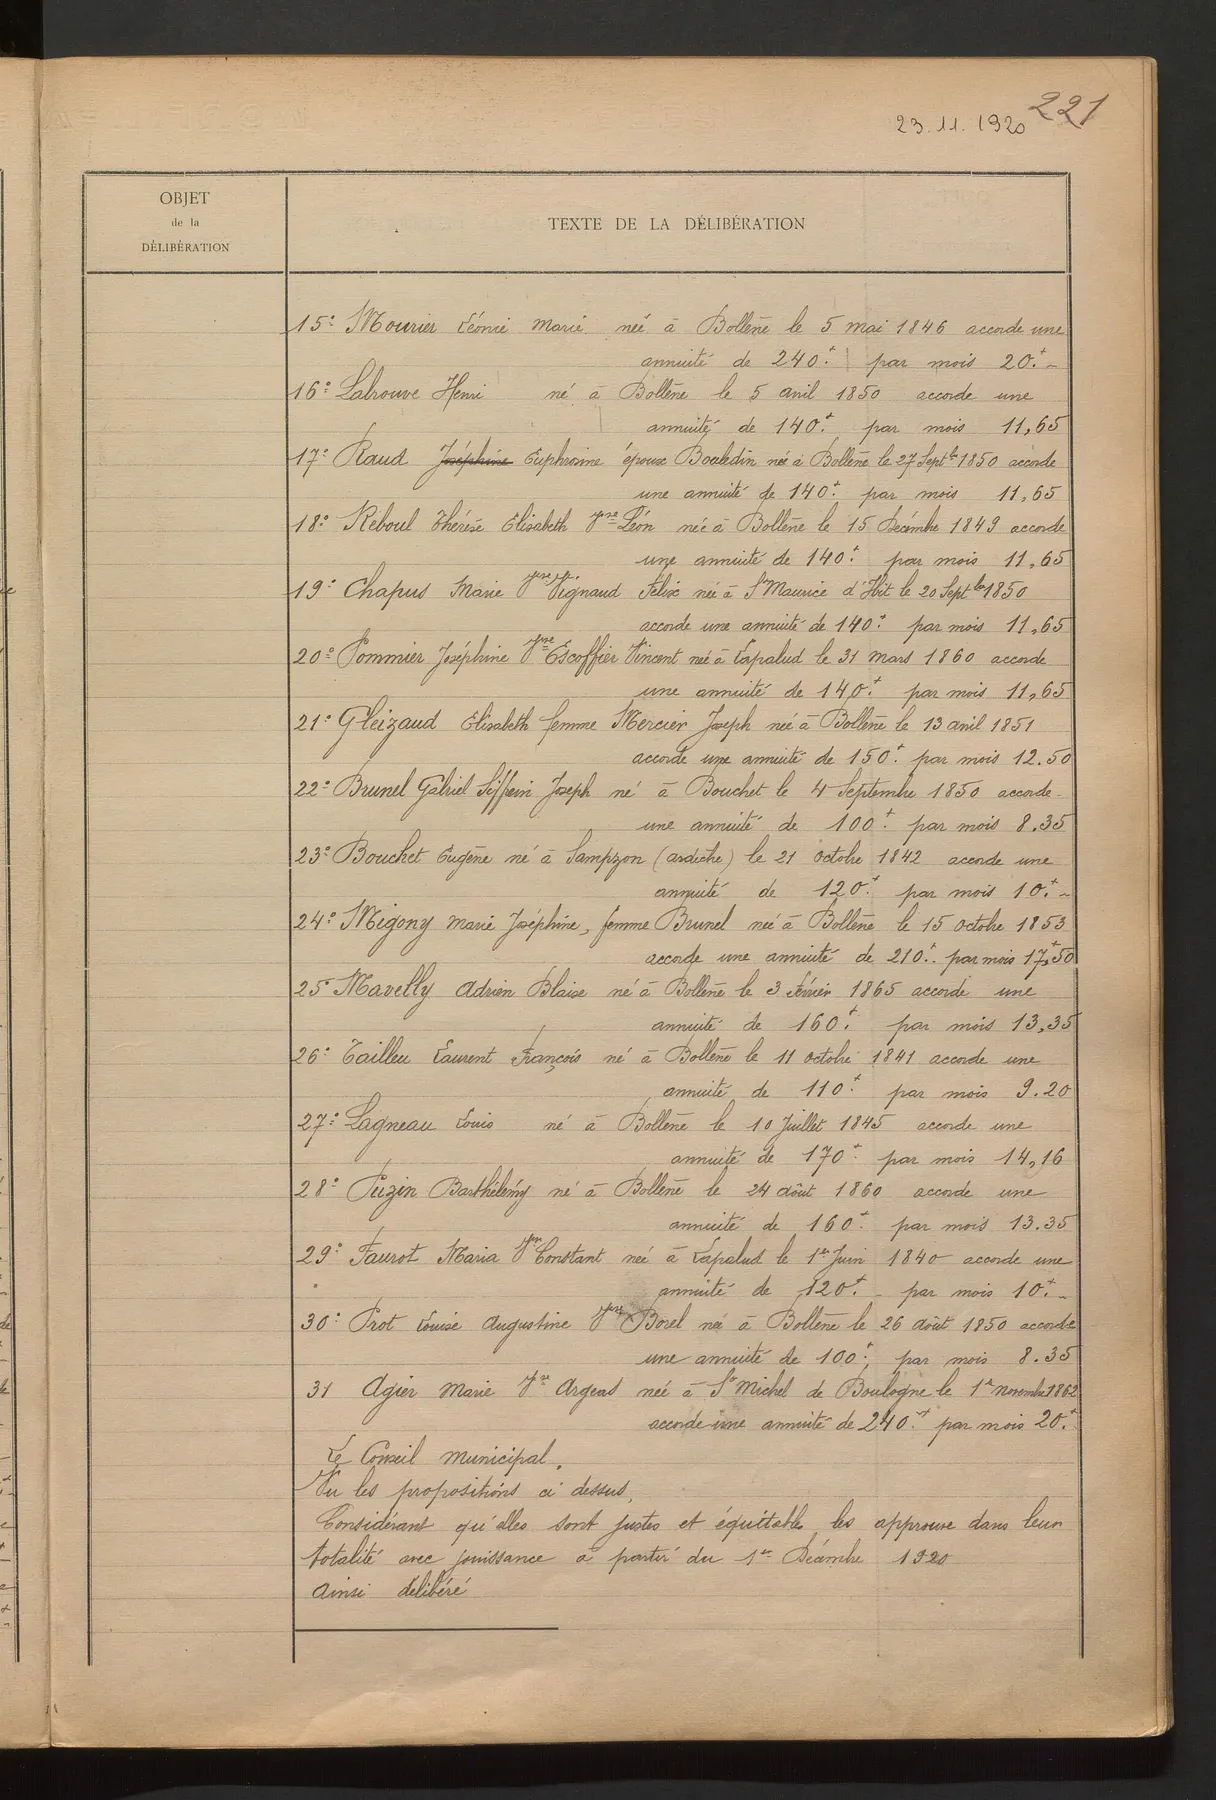 221
23.11.1920
OBJET
de la
DÉLIBÉRATION
TEXTE DE LA DÉLIBÉRATION
15° Mourier Léonie Marie née à Bollène le 5 mai 1846 accorde une
annuité de 240.f par mois 20.f -
16° Labrouve Henri né à Bollène le 5 avril 1850 accorde une
annuité de 140.f par mois 11,65
17° Raud Joséphine Euphrosine épouse née à Bollène le 27 Septbre 1850 accorde
une annuité de 140.f par mois 11,65
18° Reboul Thérèse Elisabeth Vve Léon née à Bollène le 15 Décembre 1849 accorde
une annuité de 140.f par mois 11,65
19° Chapus Marie Vve Vignaud Félix née à St Maurice d'Ibit le 20 Septbre 1850
accorde une annuité de 140.f par mois 11,65
20° Pommier Joséphine Vve Escoffier Vincent née à Lapalud le 31 mars 1860 accorde
une annuité de 140.f par mois 11,65
21° Gleizaud Elisabeth femme Mercier Joseph née à Bollène le 13 avril 1851
accorde une annuité de 150.f par mois 12.50
22° Brunel Gabriel Siffrein Joseph né à Bouchet le 4 Septembre 1850 accorde
une annuité de 100.f par mois 8.35
23° Bouchet Eugène né à Sampzon (ardèche) le 21 octobre 1842 accorde une
annuité de 120.f par mois 10.f -
24° Migony Marie Joséphine, femme Brunel née à Bollène le 15 octobre 1853
accorde une annuité de 210.f par mois 17,f50
25° Mavelly Adrien Blaise né à Bollène le 3 février 1865 accorde une
annuité de 160.f par mois 13,35
26° Tailleu Laurent François né à Bollène le 11 octobre 1841 accorde une
annuité de 110.f par mois 9.20
27° Lagneau Louis né à Bollène le 10 Juillet 1845 accorde une
annuité de 170.f par mois 14,16
28° Puzin Barthélémy né à Bollène le 24 août 1860 accorde une
annuité de 160.f par mois 13.35
29° Faurot Maria Vve Constant née à Lapalud le 1er Juin 1840 accorde une
annuité de 120.f - par mois 10.f -
30° Prot Louise Augustine Vve Borel née à Bollène le 26 août 1850 accorde
une annuité de 100.f, par mois 8.35
31 Agier Marie Vve Argeas née à St Michel de Boulogne le 1er novembre 1862
accorde une annuité de 240.f par mois 20.f
Le Conseil municipal.
Vu les propositions ci dessus,
Considérant qu'elles sont justes et équitables les approuve dans leur
totalité avec jouissance à partir du 1er Décembre 1920
Ainsi délibéré